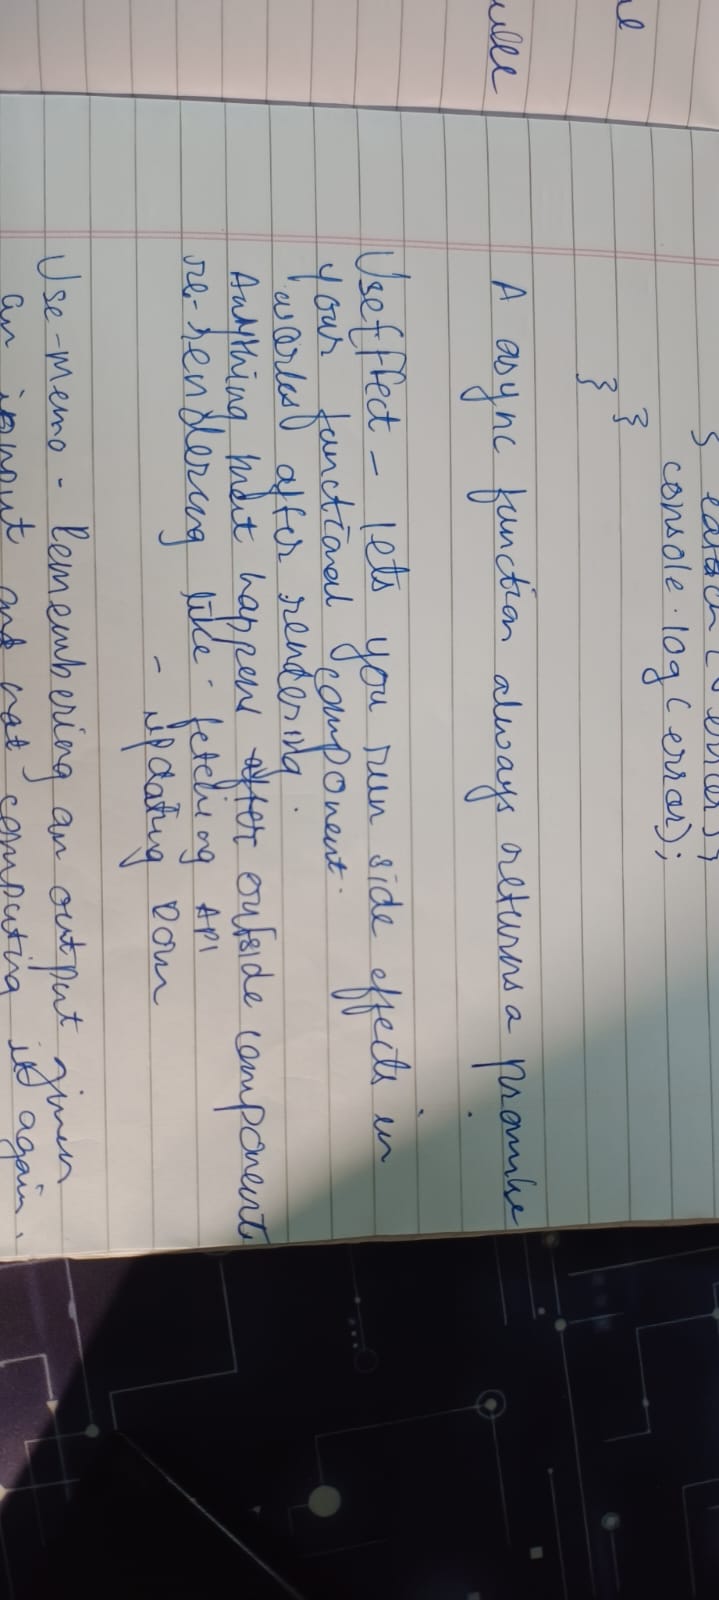 console.log(error);
}
}
A async function always returns a promise
Useffect - lets you run side effects in
your functional component.
works after rendering.
Anything that happens after outside components
re-rendering like - fetching API
- updating DOM
Use-memo - Remembering an output given
an input and not computing it again.